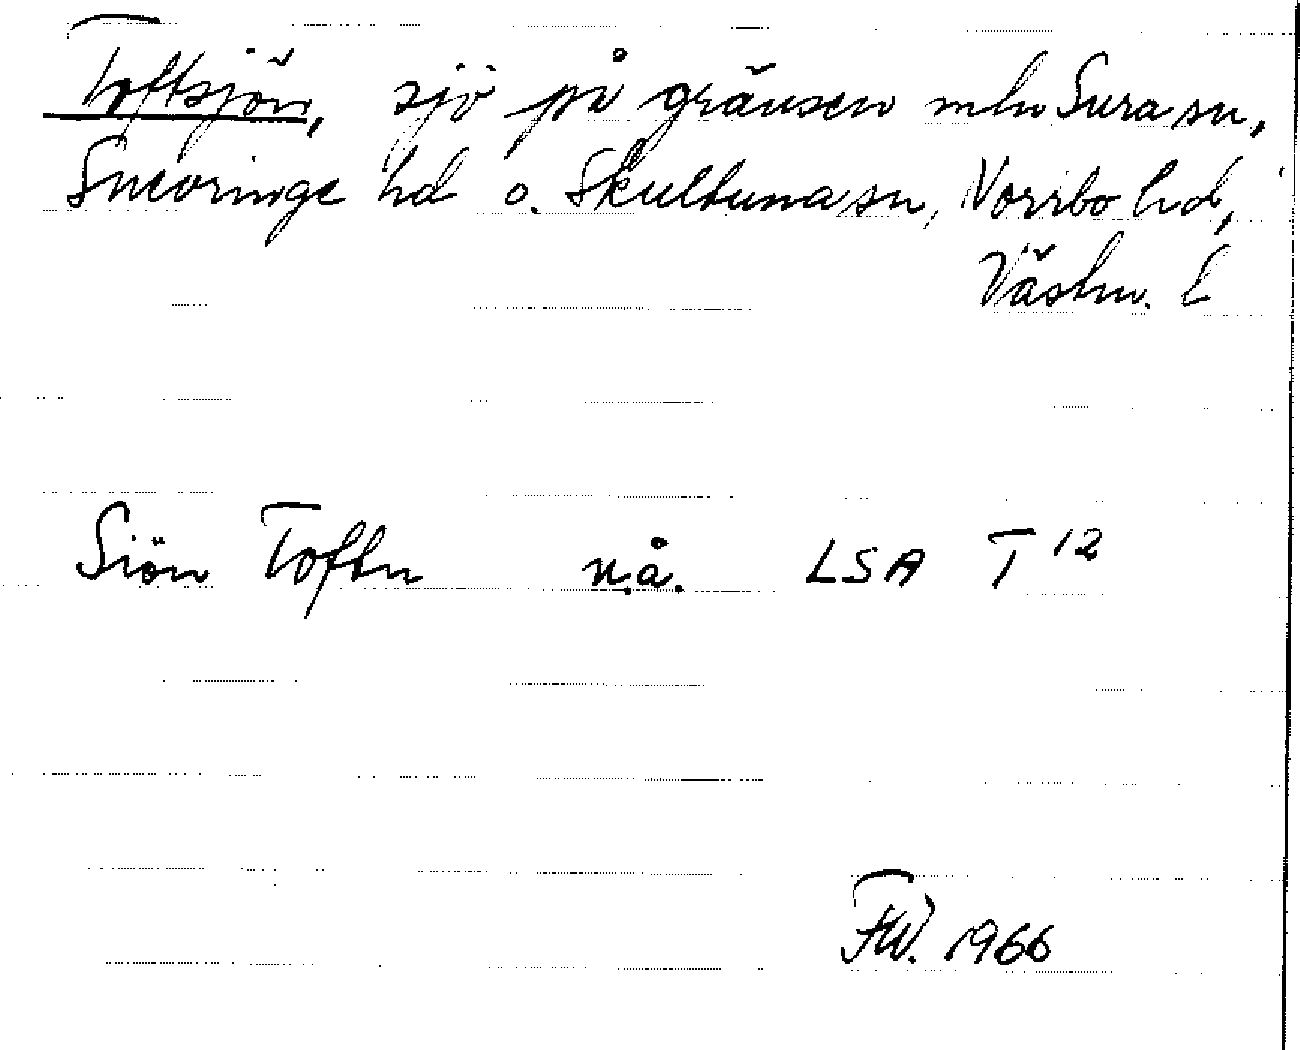 Toftsjön, sjö på gränsen mln Sura sn,
Snevringe hd o. Skultuna sn, Norrbo hd,
Västm. l
Siön Toftn n.å. LSA T 12
FW. 1966